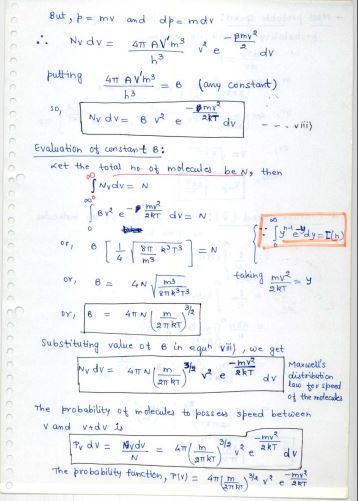 But, p = mv and dp = mdv
∴ Nv dv = 4πAV'm³/h³ v² e^(-βmv²/2) dv
putting 4πAV'm³/h³ = B (any constant)
so, Nv dv = B v² e^(-mv²/2kT) dv - - - viii)
Evaluation of constant B:
Let the total no. of molecules be N, then
∫₀^∞ Nv dv = N
∫₀^∞ Bv² e^(-mv²/2kT) dv = N
{ ∵ ∫₀^∞ y^(n-1) e^(-y) dy = Γ(n)
or, B [1/4 √(8π k³T³/m³)] = N
taking mv²/2kT = y
or, B = 4N √(m³/8πk³T³)
or, B = 4πN (m/2πkT)^(3/2)
Substituting value of B in equn viii), we get
Nv dv = 4πN (m/2πkT)^(3/2) v² e^(-mv²/2kT) dv
Maxwell's
distribution
law for speed
of the molecules
The probability of molecules to possess speed between
v and v+dv is
Pv dv = Nvdv/N = 4π(m/2πkT)^(3/2) v² e^(-mv²/2kT) dv
The probability function, P(v) = 4π(m/2πkT)^(3/2) v² e^(-mv²/2kT)